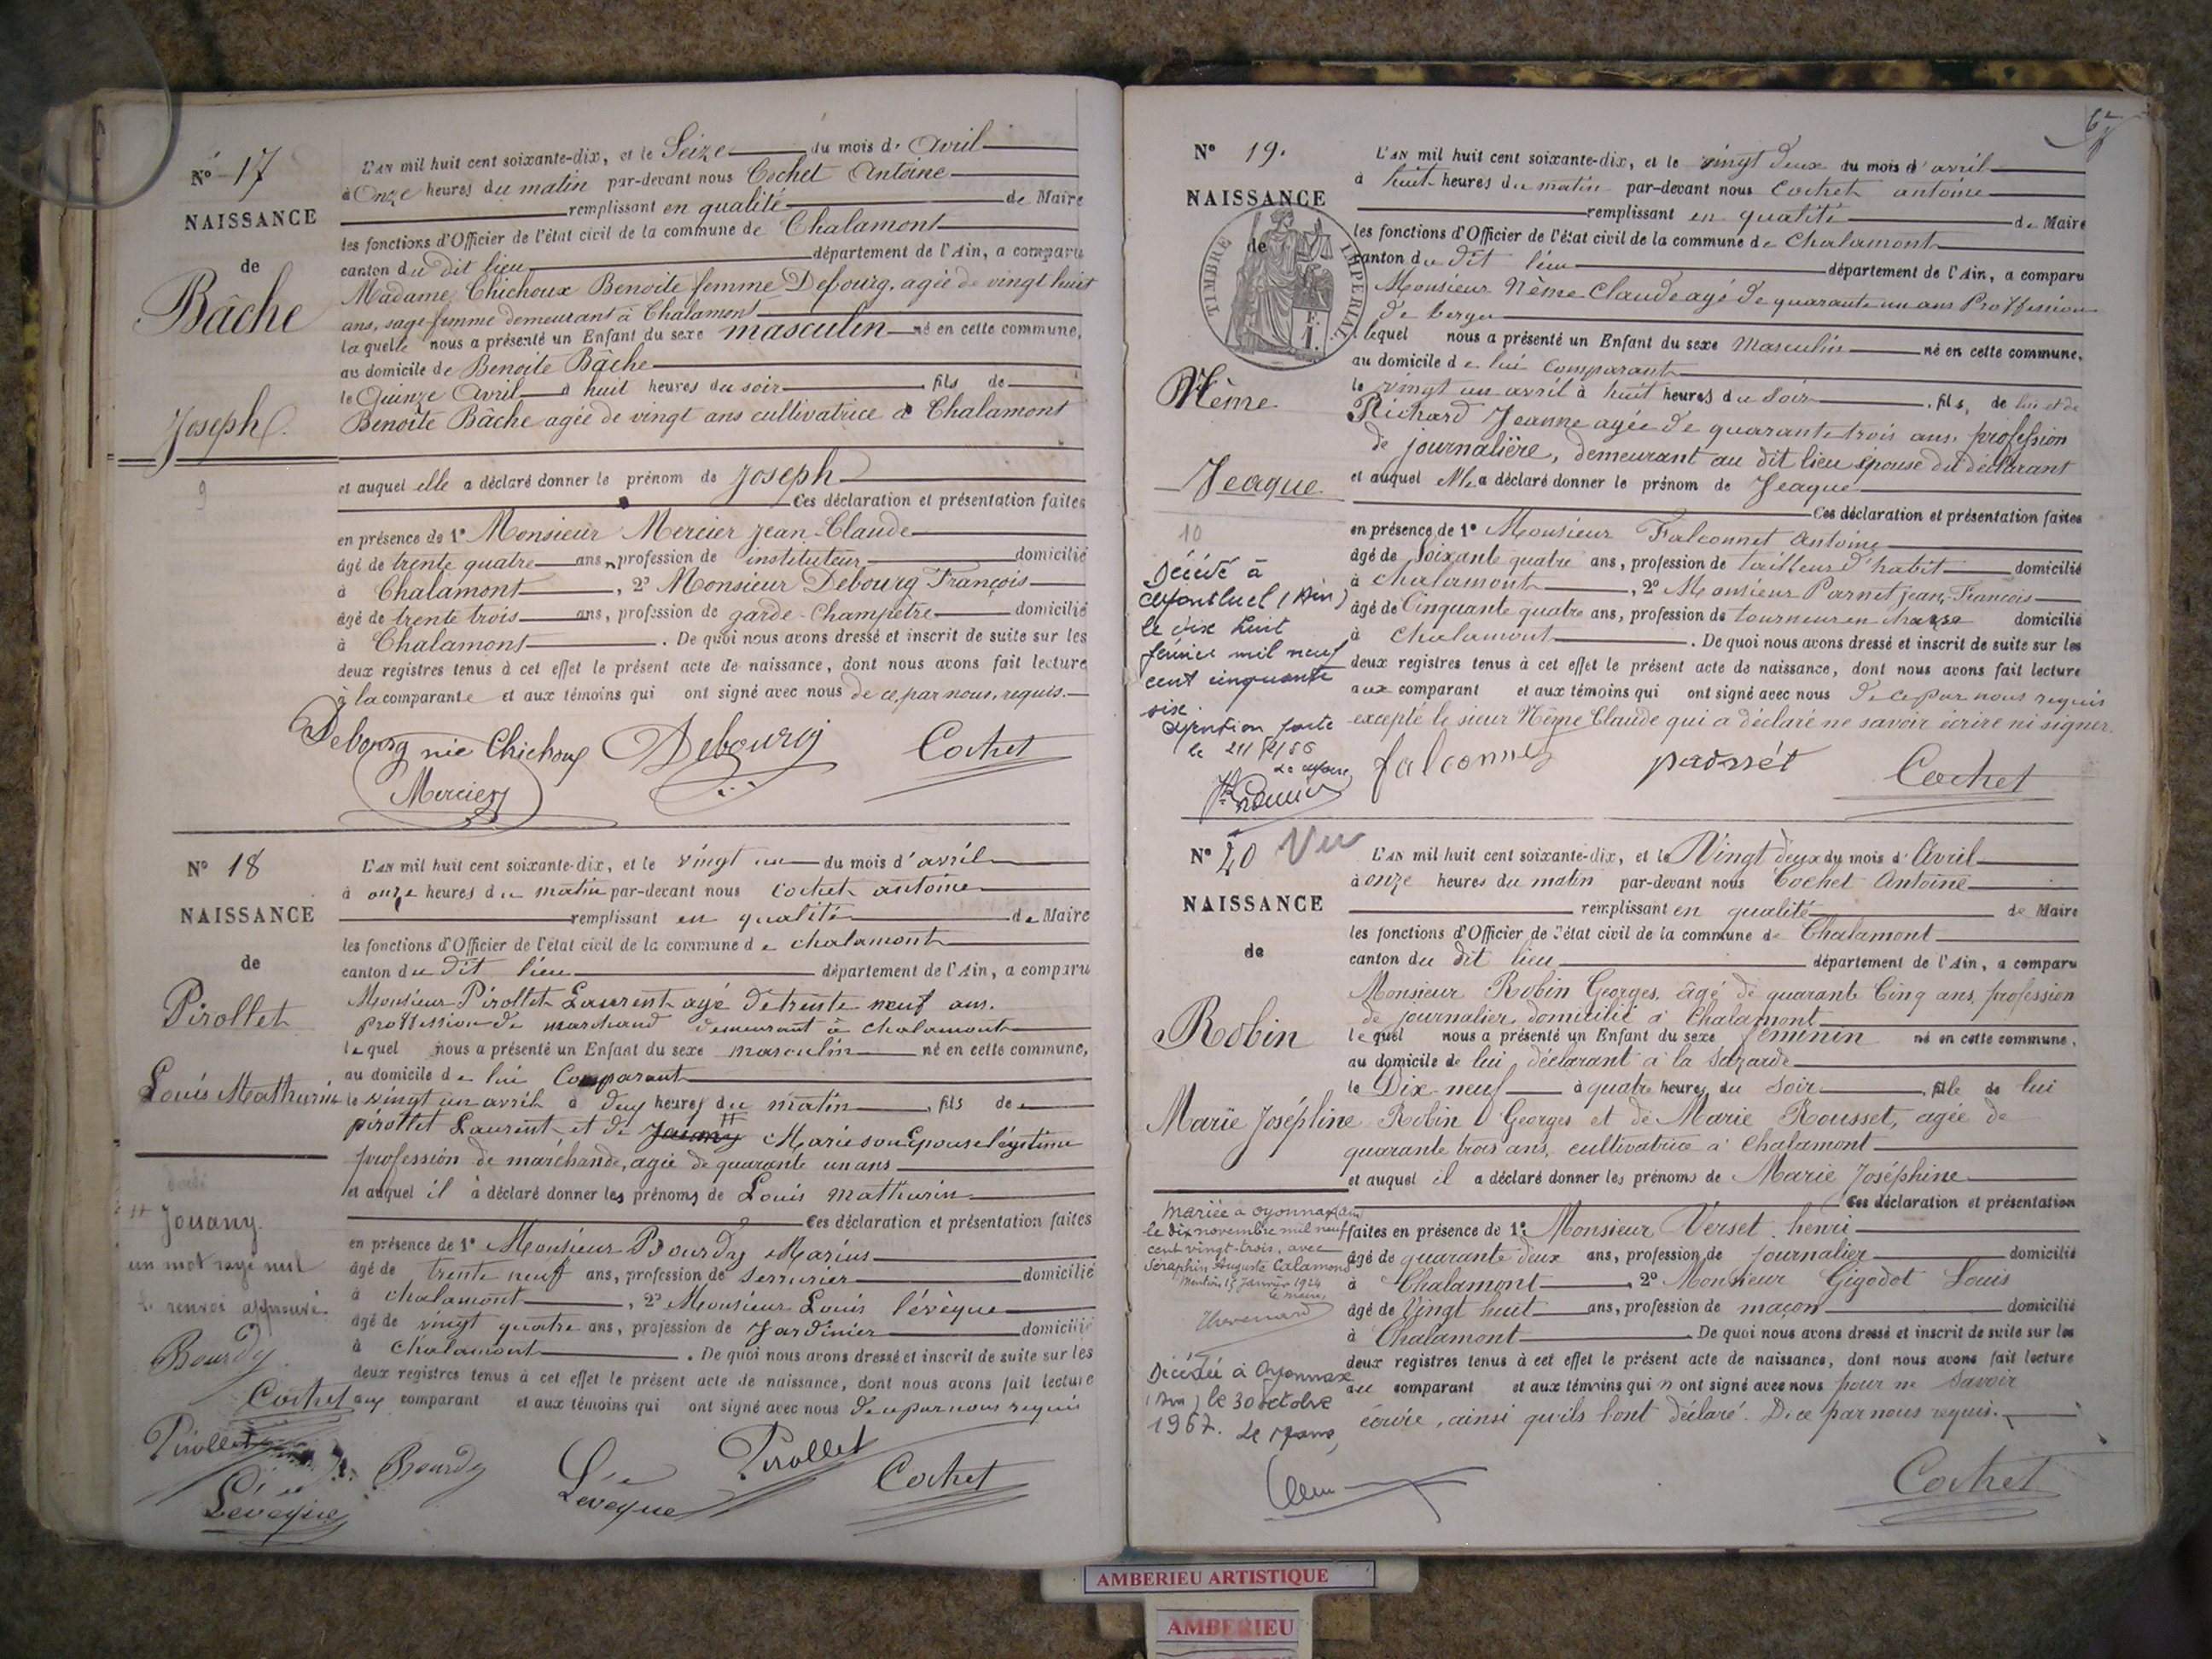 N° 17
NAISSANCE
de
Bâche
Joseph
9
L'AN mil huit cent soixante-dix, et le Seize du mois de Avril
à Onze heures du matin par-devant nous Cochet Antoine
remplissant en qualité de Maire
les fonctions d'Officier de l'état civil de la commune de Chalamont
canton du dit lieu département de l'Ain, a comparu
Madame Chichoux Benoite femme Debourg, agée de vingt huit
ans, sage-femme demeurant à Chalamont
laquelle nous a présenté un Enfant du sexe masculin né en cette commune,
au domicile de Benoite Bâche
le Quinze Avril à huit heures du soir fils de
Benoîte Bâche agée de vingt ans cultivatrice à Chalamont
et auquel elle a déclaré donner le prénom de Joseph
Ces déclaration et présentation faites
en présence de 1° Monsieur Mercier Jean-Claude
âgé de trente quatre ans, profession de instituteur domicilié
à Chalamont, 2° Monsieur Debourg François
âgé de trente trois ans, profession de garde-Champêtre domicilié
à Chalamont. De quoi nous avons dressé et inscrit de suite sur les
deux registres tenus à cet effet le présent acte de naissance, dont nous avons fait lecture
à la comparante et aux témoins qui ont signé avec nous de ce par nous, requis.
Debourg née Chichoux Debourg Cochet
Mercier
N° 18
NAISSANCE
de
Pirollet
Louis Mathurin
L'AN mil huit cent soixante-dix, et le vingt un du mois d'avril
à onze heures du matin par-devant nous Cochet antoine
remplissant en qualité de Maire
les fonctions d'Officier de l'état civil de la commune de chalamont
canton du dit lieu département de l'Ain, a comparu
Monsieur Pirollet Laurent agé de trente neuf ans.
proffession de marchand demeurant à chalamont
lequel nous a présenté un Enfant du sexe masculin né en cette commune,
au domicile de lui Comparant
le vingt un avril à deux heures du matin, fils de
pirollet Laurent et de Marie son Epouse légitime
profession de marchande, agée de quarante un ans
et auquel il a déclaré donner les prénoms de Louis mathurin
Ces déclaration et présentation faites
en présence de 1° Monsieur Bourdy Marius
âgé de trente neuf ans, profession de serrurier domicilié
à chalamont, 2° Monsieur Louis lévèque
âgé de vingt quatre ans, profession de Jardinier domicilié
à chalamont. De quoi nous avons dressé et inscrit de suite sur les
deux registres tenus à cet effet le présent acte de naissance, dont nous avons fait lecture
aux comparant et aux témoins qui ont signé avec nous de ce par nous requis
Jouany
un mot rayé nul
le renvoi approuvé
Bourdy
Cochet
Pirollet
Leveque
Bourdy Leveque Pirollet Cochet
N° 19.
NAISSANCE
de
TIMBRE IMPERIAL
Nême
Jeague
10
L'AN mil huit cent soixante-dix, et le vingt deux du mois d'avril
à huit heures du matin par-devant nous Cochet antoine
remplissant en qualité de Maire
les fonctions d'Officier de l'état civil de la commune de Chalamont
canton du dit lieu département de l'Ain, a comparu
Monsieur Nême Claude agé de quarante un ans Proffession
de berger
lequel nous a présenté un Enfant du sexe Masculin né en cette commune,
au domicile de lui comparant
le vingt un avril à huit heures du soir, fils, de lui et de
Richard Jeanne agée de quarante trois ans, profession
de journalière, demeurant au dit lieu épouse du déclarant
et auquel a déclaré donner le prénom de Jeague
Ces déclaration et présentation faites
en présence de 1° Monsieur Falconnet Antoine
âgé de soixante quatre ans, profession de tailleur d'habit domicilié
à chalamont, 2° Monsieur Parnet jean, Francois
âgé de Cinquante quatre ans, profession de tourneur en domicilié
à chalamont. De quoi nous avons dressé et inscrit de suite sur les
deux registres tenus à cet effet le présent acte de naissance, dont nous avons fait lecture
aux comparant et aux témoins qui ont signé avec nous de ce par nous requis
excepté le sieur Nême Claude qui a déclaré ne savoir écrire ni signer.
Décédé à
Montluel (Ain)
le dix huit
février mil neuf
cent cinquante
six
Mention faite
le 21/2/56
Le Maire
falconnet Cochet
N° 20 Vu
NAISSANCE
de
Robin
Marie Joséphine
L'AN mil huit cent soixante-dix, et le Vingt deux du mois d'Avril
à onze heures du matin par-devant nous Cochet Antoine
remplissant en qualité de Maire
les fonctions d'Officier de l'état civil de la commune de Chalamont
canton du dit lieu département de l'Ain, a comparu
Monsieur Robin Georges, âgé de quarante Cinq ans, profession
de journalier, domicilié à Chalamont
lequel nous a présenté un Enfant du sexe féminin né en cette commune,
au domicile de lui, déclarant à la
le Dix-neuf à quatre heures du soir, fille de lui
Robin Georges et de Marie Rousset, agée de
quarante trois ans, cultivatrice à Chalamont
et auquel il a déclaré donner les prénoms de Marie Joséphine
Ces déclaration et présentation
faites en présence de 1° Monsieur Verset henri
âgé de quarante deux ans, profession de journalier domicilié
à Chalamont, 2° Monsieur Gigodot Louis
âgé de Vingt huit ans, profession de maçon domicilié
à Chalamont. De quoi nous avons dressé et inscrit de suite sur les
deux registres tenus à cet effet le présent acte de naissance, dont nous avons fait lecture
au comparant et aux témoins qui n'ont signé avec nous pour ne savoir
écrire, ainsi qu'ils l'ont déclaré. De ce par nous requis.
Mariée à Oyonnax (Ain)
le dix novembre mil neuf
cent vingt-trois, avec
Séraphin Auguste Calamond
Mention 15 Janvier 1924
Le Maire,
Décédée à Oyonnax
(Ain) le 30 octobre
1967. Le Maire,
Cochet
AMBERIEU ARTISTIQUE
AMBERIEU